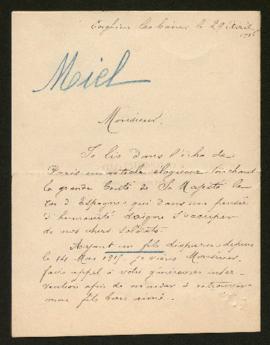 Enghien les bains le 29 Avril
Miel
Monsieur.
Je lis dans l'écho de
Paris un article élogieux touchant
la grande bonté de Sa Majesté le
roi d'Espagne qui dans une pensée
d'humanité daigne s'occuper
de nos chers soldats.
Ayant un fils disparu depuis
le 14 Mai 1915 je viens Monsieur
faire appel à votre généreuse inter-
vention afin de m'aider à retrouver
mon fils bien aimé.